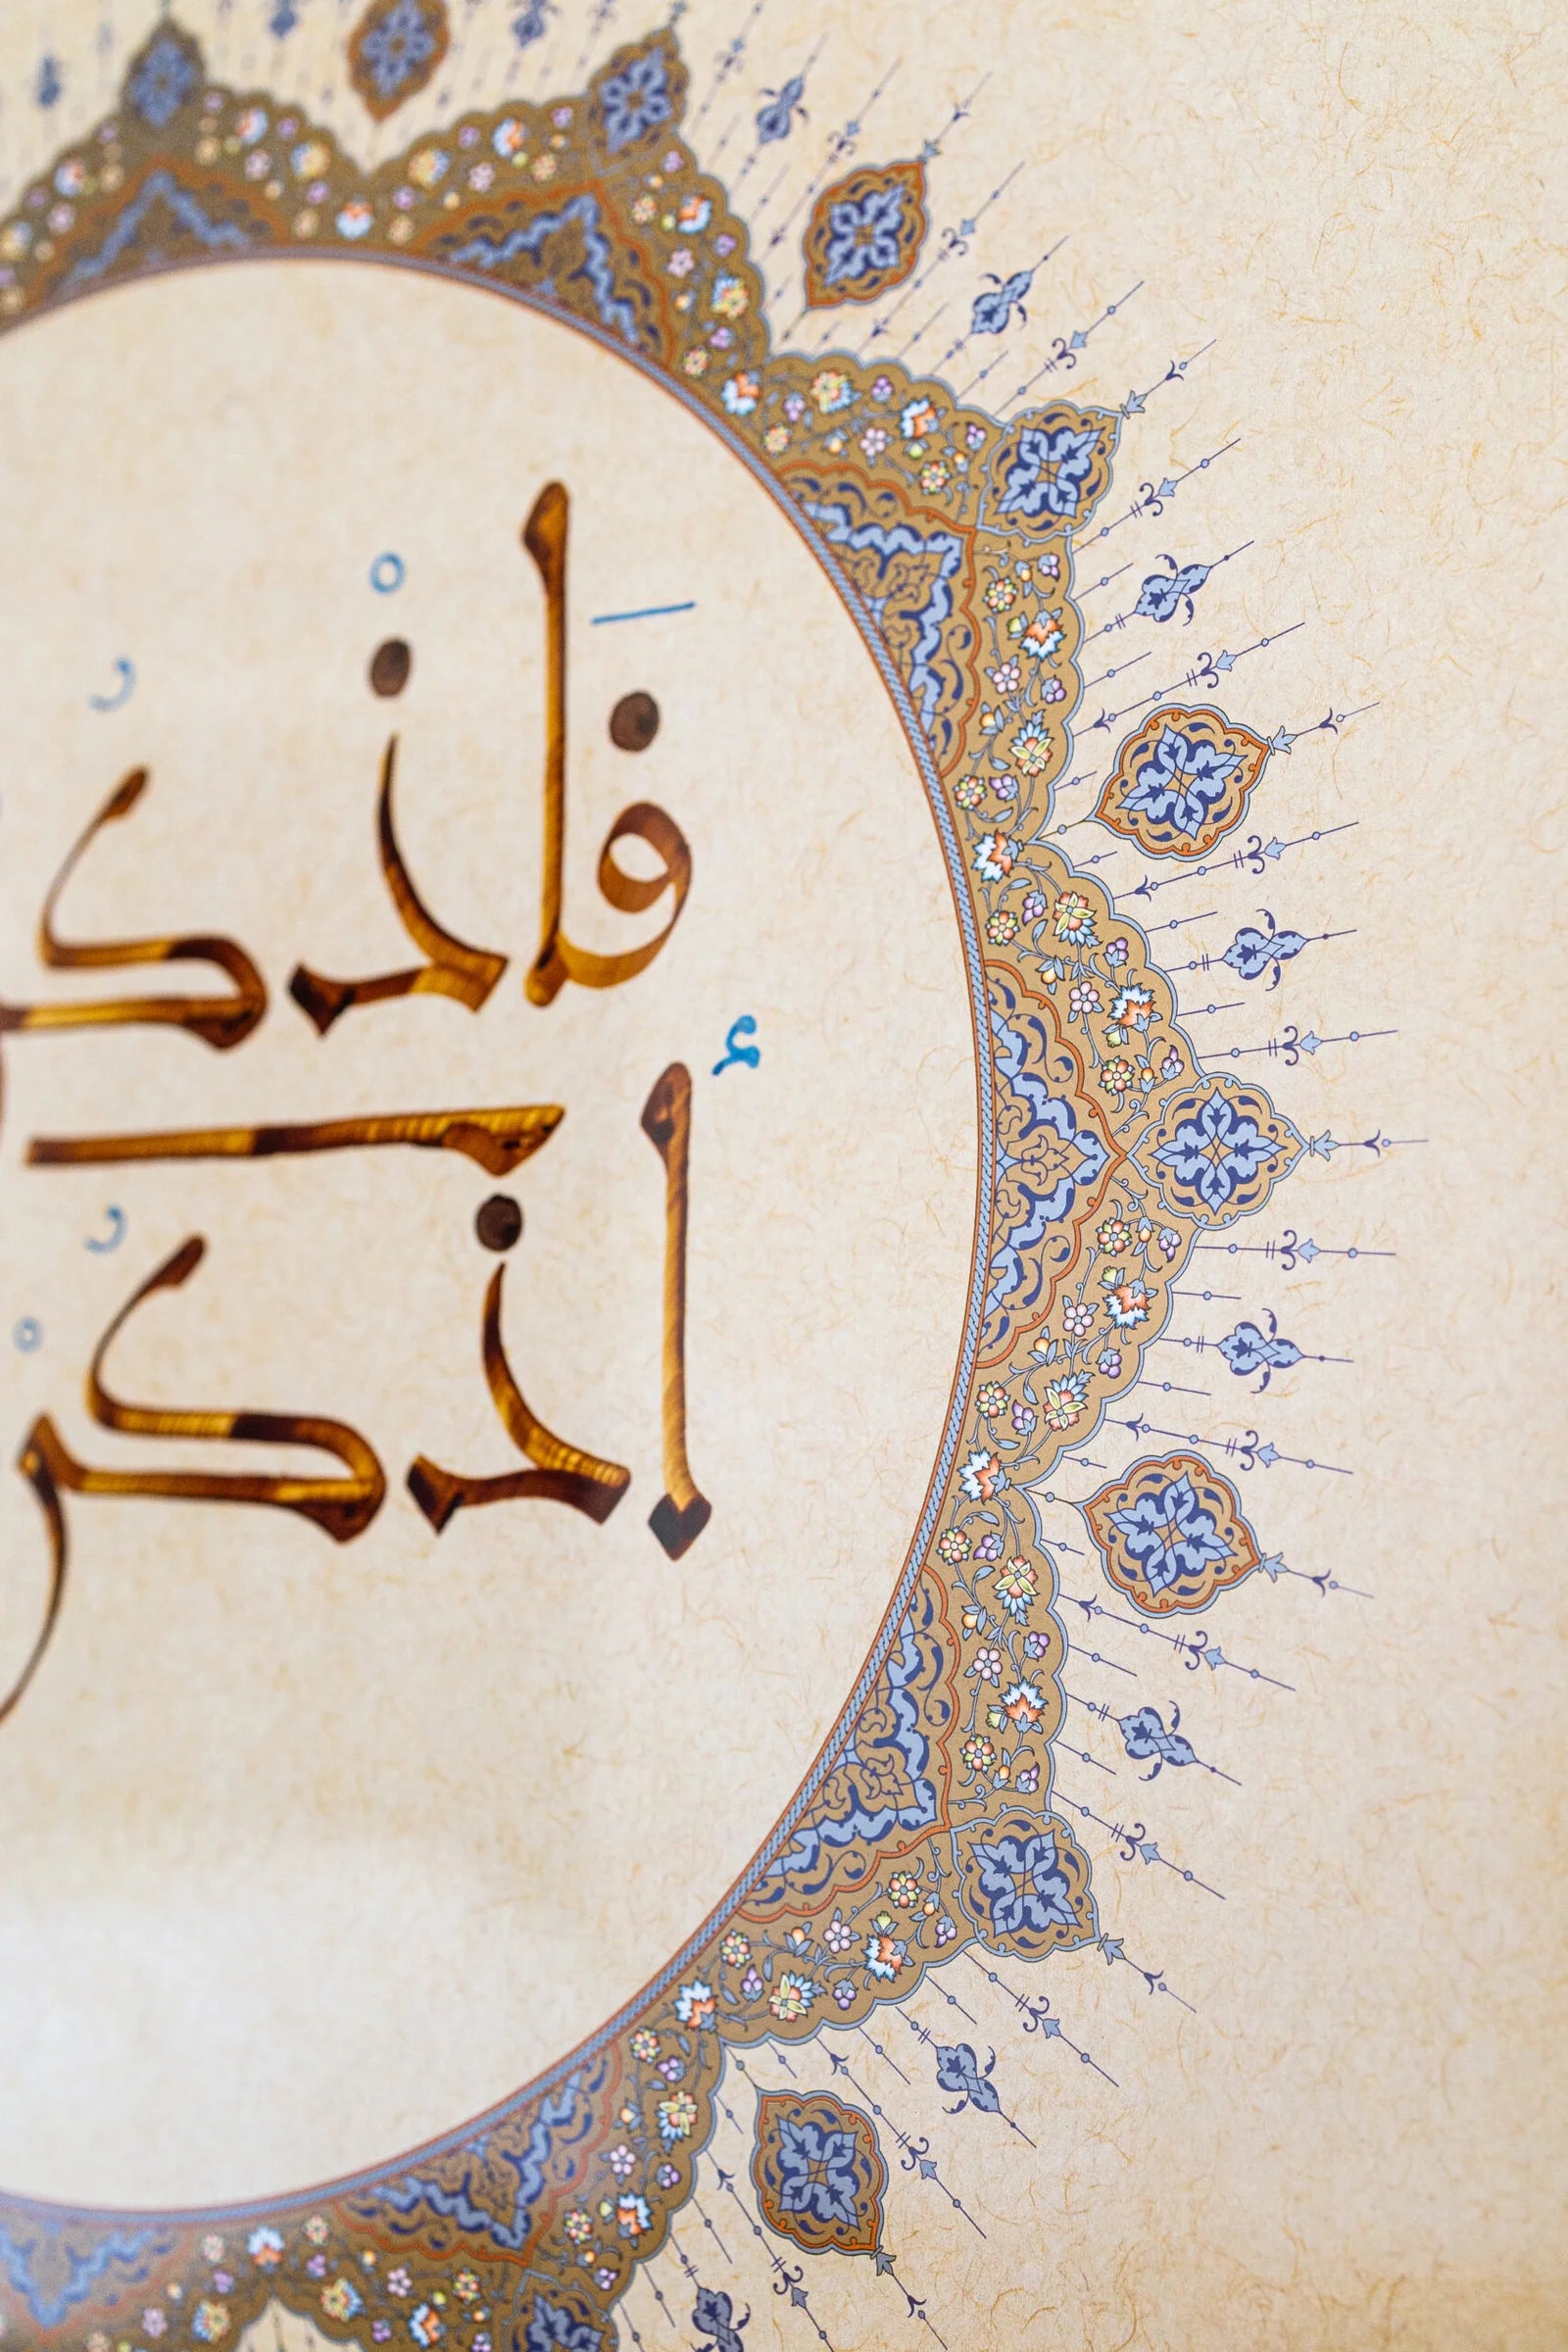 فَاذْكُ
أذْكُرْ